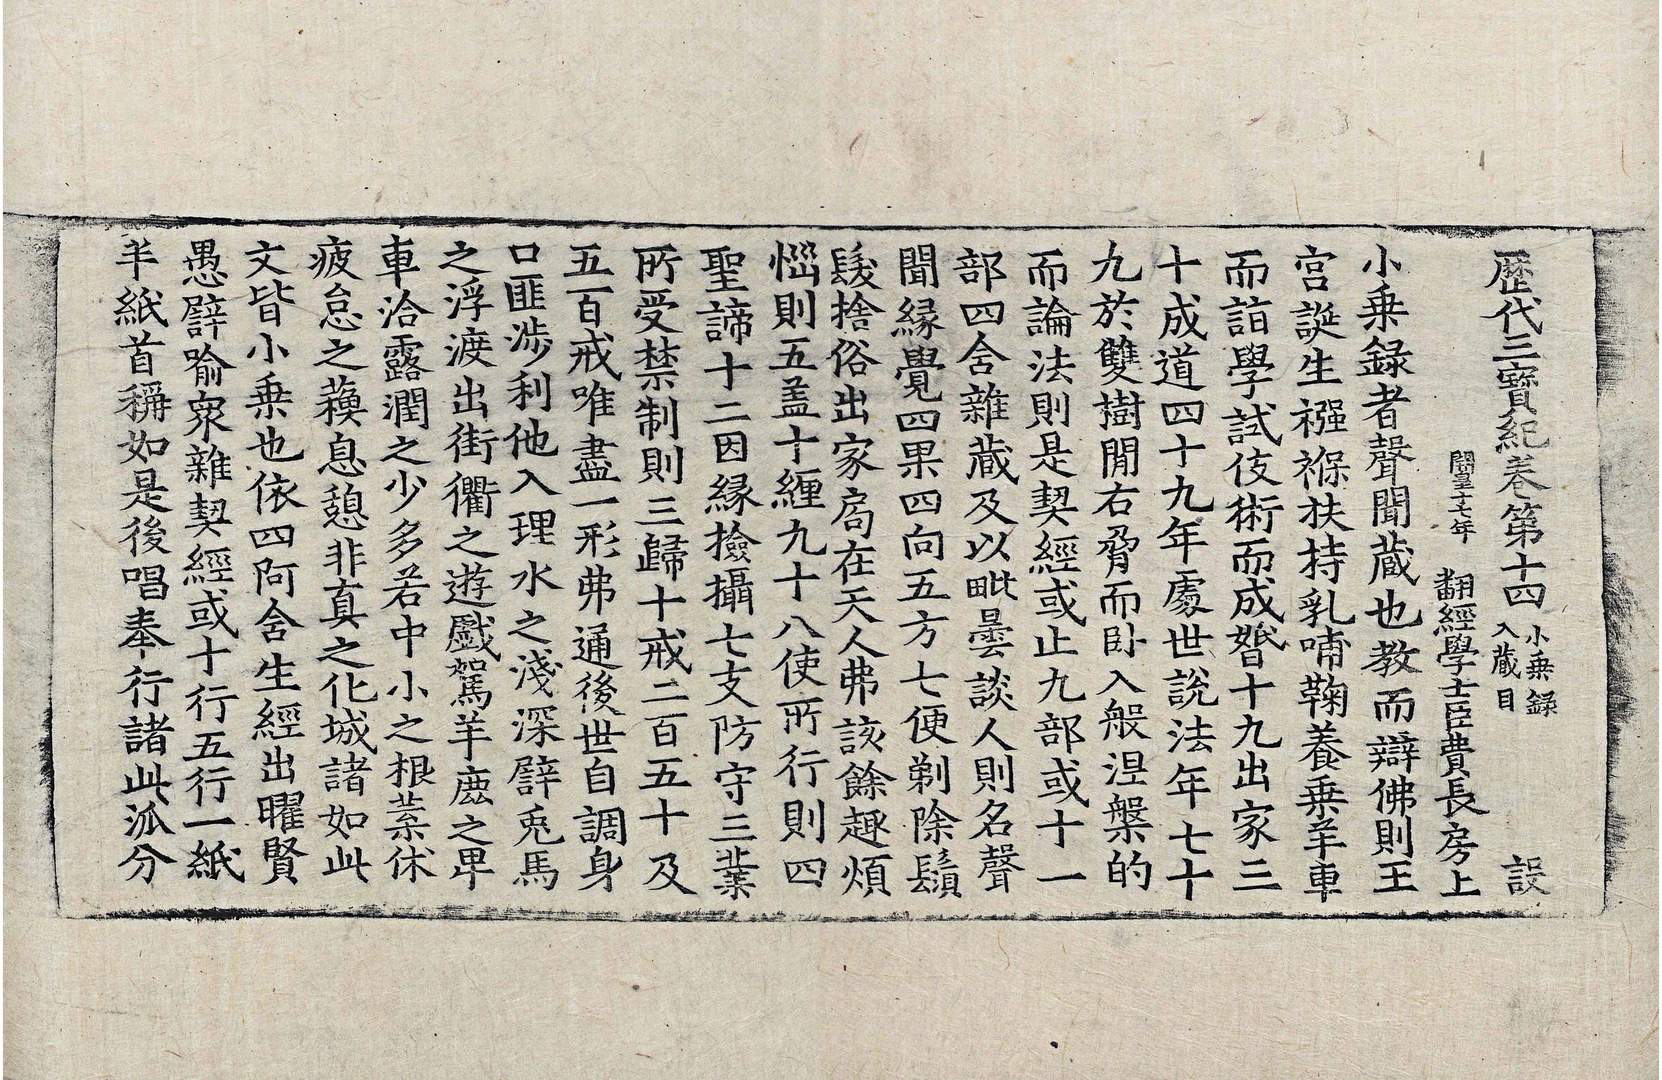 歷代三寶紀卷第十四 小乗録 入蔵目 設
開皇十七年 翻經學士臣費長房上
小乗録者聲聞蔵也教而辯佛則王
宮誕生襁褓扶持乳哺鞠養乗羊車
而詣學試伎術而成婚十九出家三
十成道四十九年處世説法年七十
九於雙樹閒右脅而卧入般涅槃的
而論法則是契經或止九部或十一
部四含雜蔵及以毗曇談人則名聲
聞縁覺四果四向五方七便剃除鬚
髮捨俗出家局在天人弗該餘趣煩
惱則五盖十纏九十八使所行則四
聖諦十二因縁撿攝七支防守三業
所受禁制則三歸十戒二百五十及
五百戒唯盡一形弗通後世自調身
口匪涉利他入理水之淺深譬兎馬
之浮渡出街衢之遊戲駕羊鹿之卑
車洽露潤之少多若中小之根葉休
疲怠之蘓息憩非真之化城諸如此
文皆小乗也依四阿含生經出曜賢
愚譬喻衆雜契經或十行五行一紙
半紙首稱如是後唱奉行諸此派分